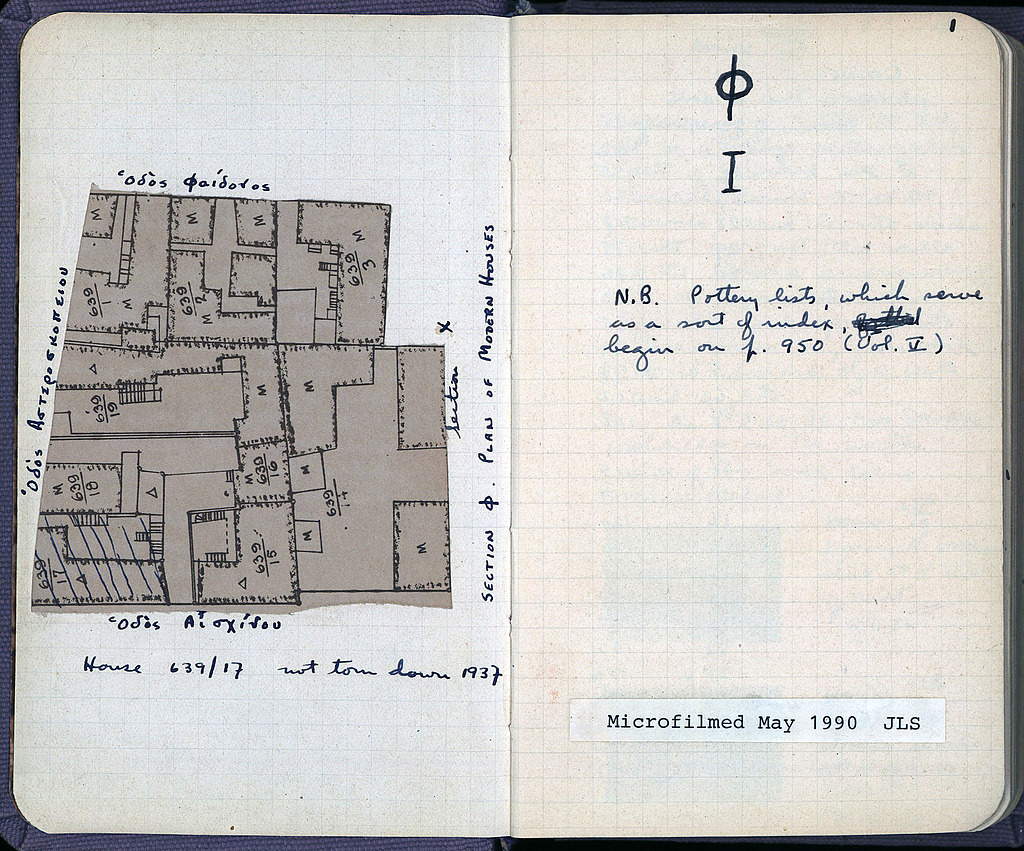 Ὁδὸς Φαίδονος
Ὁδὸς Ἀστεροσκοπείου
M
M
M
M
639/1
M
639/2
M
639/3
Δ
639/19
M
M
M
639/18
Δ
M
639/16
M
639/14
M
639/17
Δ
Δ
639/15
M
section X
SECTION Φ. PLAN OF MODERN HOUSES
Ὁδὸς Αἰσχίνου
House 639/17 not torn down 1937
1
Φ
I
N.B. Pottery lists, which serve
as a sort of index,
begin on p. 950 (Vol. V)
Microfilmed May 1990 JLS